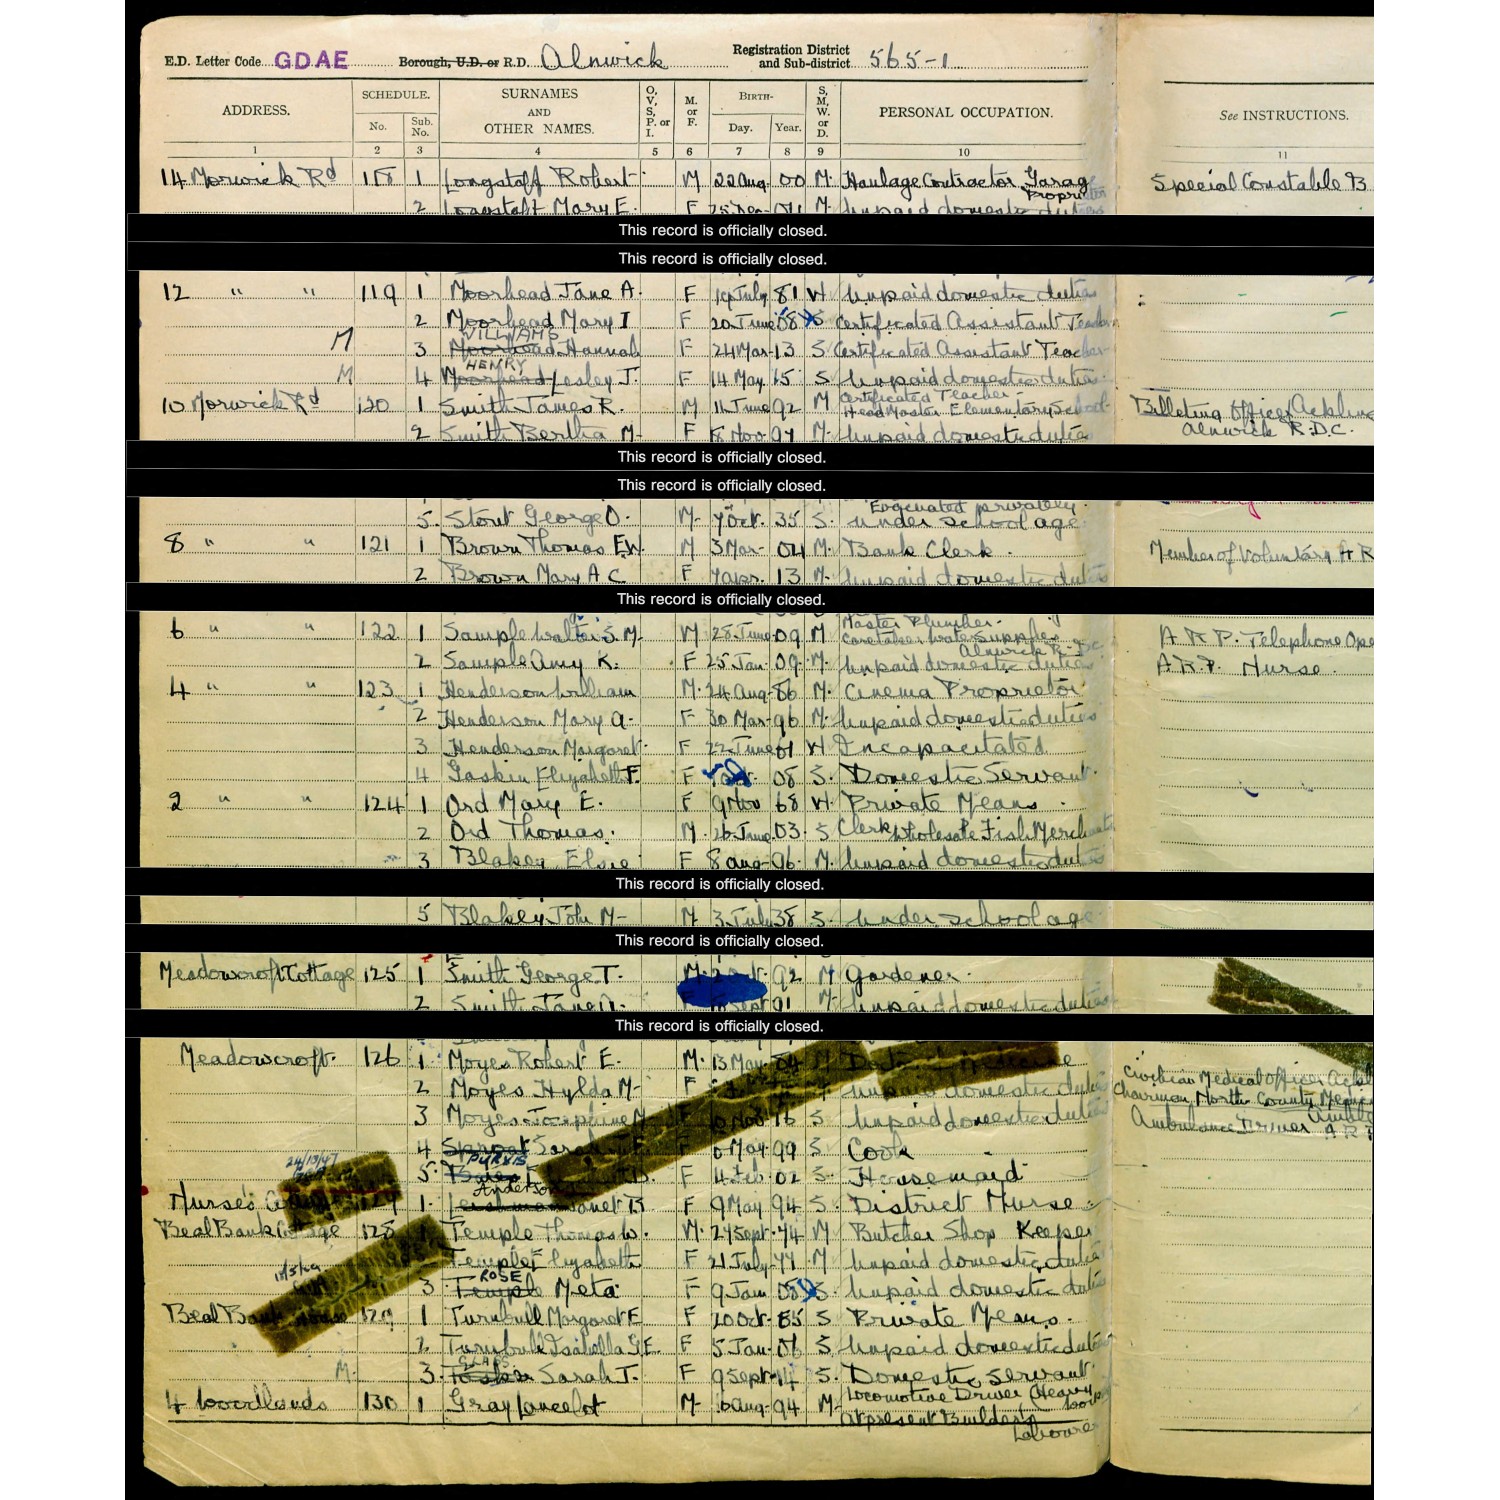 E.D. Letter Code GDAE Borough, U.D. or R.D. Alnwick Registration District and Sub-district 565-1
ADDRESS. SCHEDULE. No. Sub. No. SURNAMES AND OTHER NAMES. O, V, S, P. or I. M. or F. BIRTH- Day. Year. S, M, W. or D. PERSONAL OCCUPATION. See INSTRUCTIONS.
1 2 3 4 5 6 7 8 9 10 11
14 Morwick Rd 118 1 Longstaff Robert M 22 Aug 00 M. Haulage Contractor Garage Special Constable B
2 Longstaff Mary E. F 25 Dec M. Unpaid domestic duties
This record is officially closed.
This record is officially closed.
12 " " 119 1 Moorhead Jane A. F July 81 W Unpaid domestic duties
2 Moorhead Mary I F 20 June 08 S Certificated Assistant Teacher
WILLIAMS
M 3 Moorhead Hannah F 24 Mar 13 S Certificated Assistant Teacher
HENRY
M 4 Moorhead Lesley J. F 14 May 15 S Unpaid domestic duties
10 Morwick Rd 120 1 Smith James R. M 11 June 92 M Certificated Teacher Head Master Elementary School Billeting Officer Acklin
2 Smith Bertha M- F 8 Nov 97 M. Unpaid domestic duties Alnwick R.D.C.
This record is officially closed.
This record is officially closed.
Evacuated privately.
5. Stout George O. M. 7 Oct. 35 S. under school age
8 " " 121 1 Brown Thomas E.W. M 3 Mar- 04 M. Bank Clerk. Member of Voluntary A R
2 Brown Mary A C F 7 Apr. 13 M. Unpaid domestic duties
This record is officially closed.
Master Plumber-
6 " " 122 1 Sample Walter S. M. M 28 June 09 M Caretaker Water Supplies Alnwick R.D.C A.R.P. Telephone Ope
2 Sample Amy K. F 25 Jan. 09. M. Unpaid domestic duties A.R.P. Nurse.
4 " " 123 1 Henderson William M. 24 Aug 86 M. Cinema Proprietor
2 Henderson Mary A. F 30 Mar- 96 M. Unpaid domestic duties
3 Henderson Margaret F 22 June 61 W Incapacitated
4 Gaskin Elizabeth F. F 08 S. Domestic Servant
2 " " 124 1 Ord Mary E. F 9 Nov 68 W. Private Means.
2 Ord Thomas. M. 26 June 03. S Clerk Wholesale Fish Merchants
3 Blakey Elsie F 8 Aug- 96. M. Unpaid domestic duties
This record is officially closed.
5 Blakey John M- M 3 July 38 S. under school age
This record is officially closed.
Meadowcroft Cottage 125 1 Smith George T. M. 92 M Gardener.
2 Smith Jane Sept 91 M. Unpaid domestic duties
This record is officially closed.
Meadowcroft. 126 1 Moyes Robert E. M. 13 May 04 M Civilian Medical Officer Ackl
2 Moyes Hylda M- F Unpaid domestic duties Chairman North County
3 Moyes Josephine M F Nov 16 S Unpaid domestic duties Ambulance Driver A R P
4 Sarah F May 99 S. Cook
PURVIS
5. F 4 Feb. 02 S. Housemaid
Anderson
Nurse's 1. Janet B F 9 May 94 S. District Nurse.
Beal Bank Cottage 128 1 Temple Thomas W. M. 29 Sept. 74 M Butcher Shop Keeper
Temple Elizabeth F 21 July 77 M Unpaid domestic duties
ROSE
3 Temple Meta F 9 Jan 08 S. Unpaid domestic duties
Beal Bank House 129 1 Turnbull Margaret E F 20 Oct. 85 S Private Means.
2 Turnbull Isabella G.E. F 5 Jan. S. Unpaid domestic duties
M. 3. Sarah J. F 9 Sept 14 S. Domestic Servant
4 Woodlands 130 1 Gray Lancelot M- Aug- 94 M- Locomotive Driver (Heavy
At present Builder's Labourer